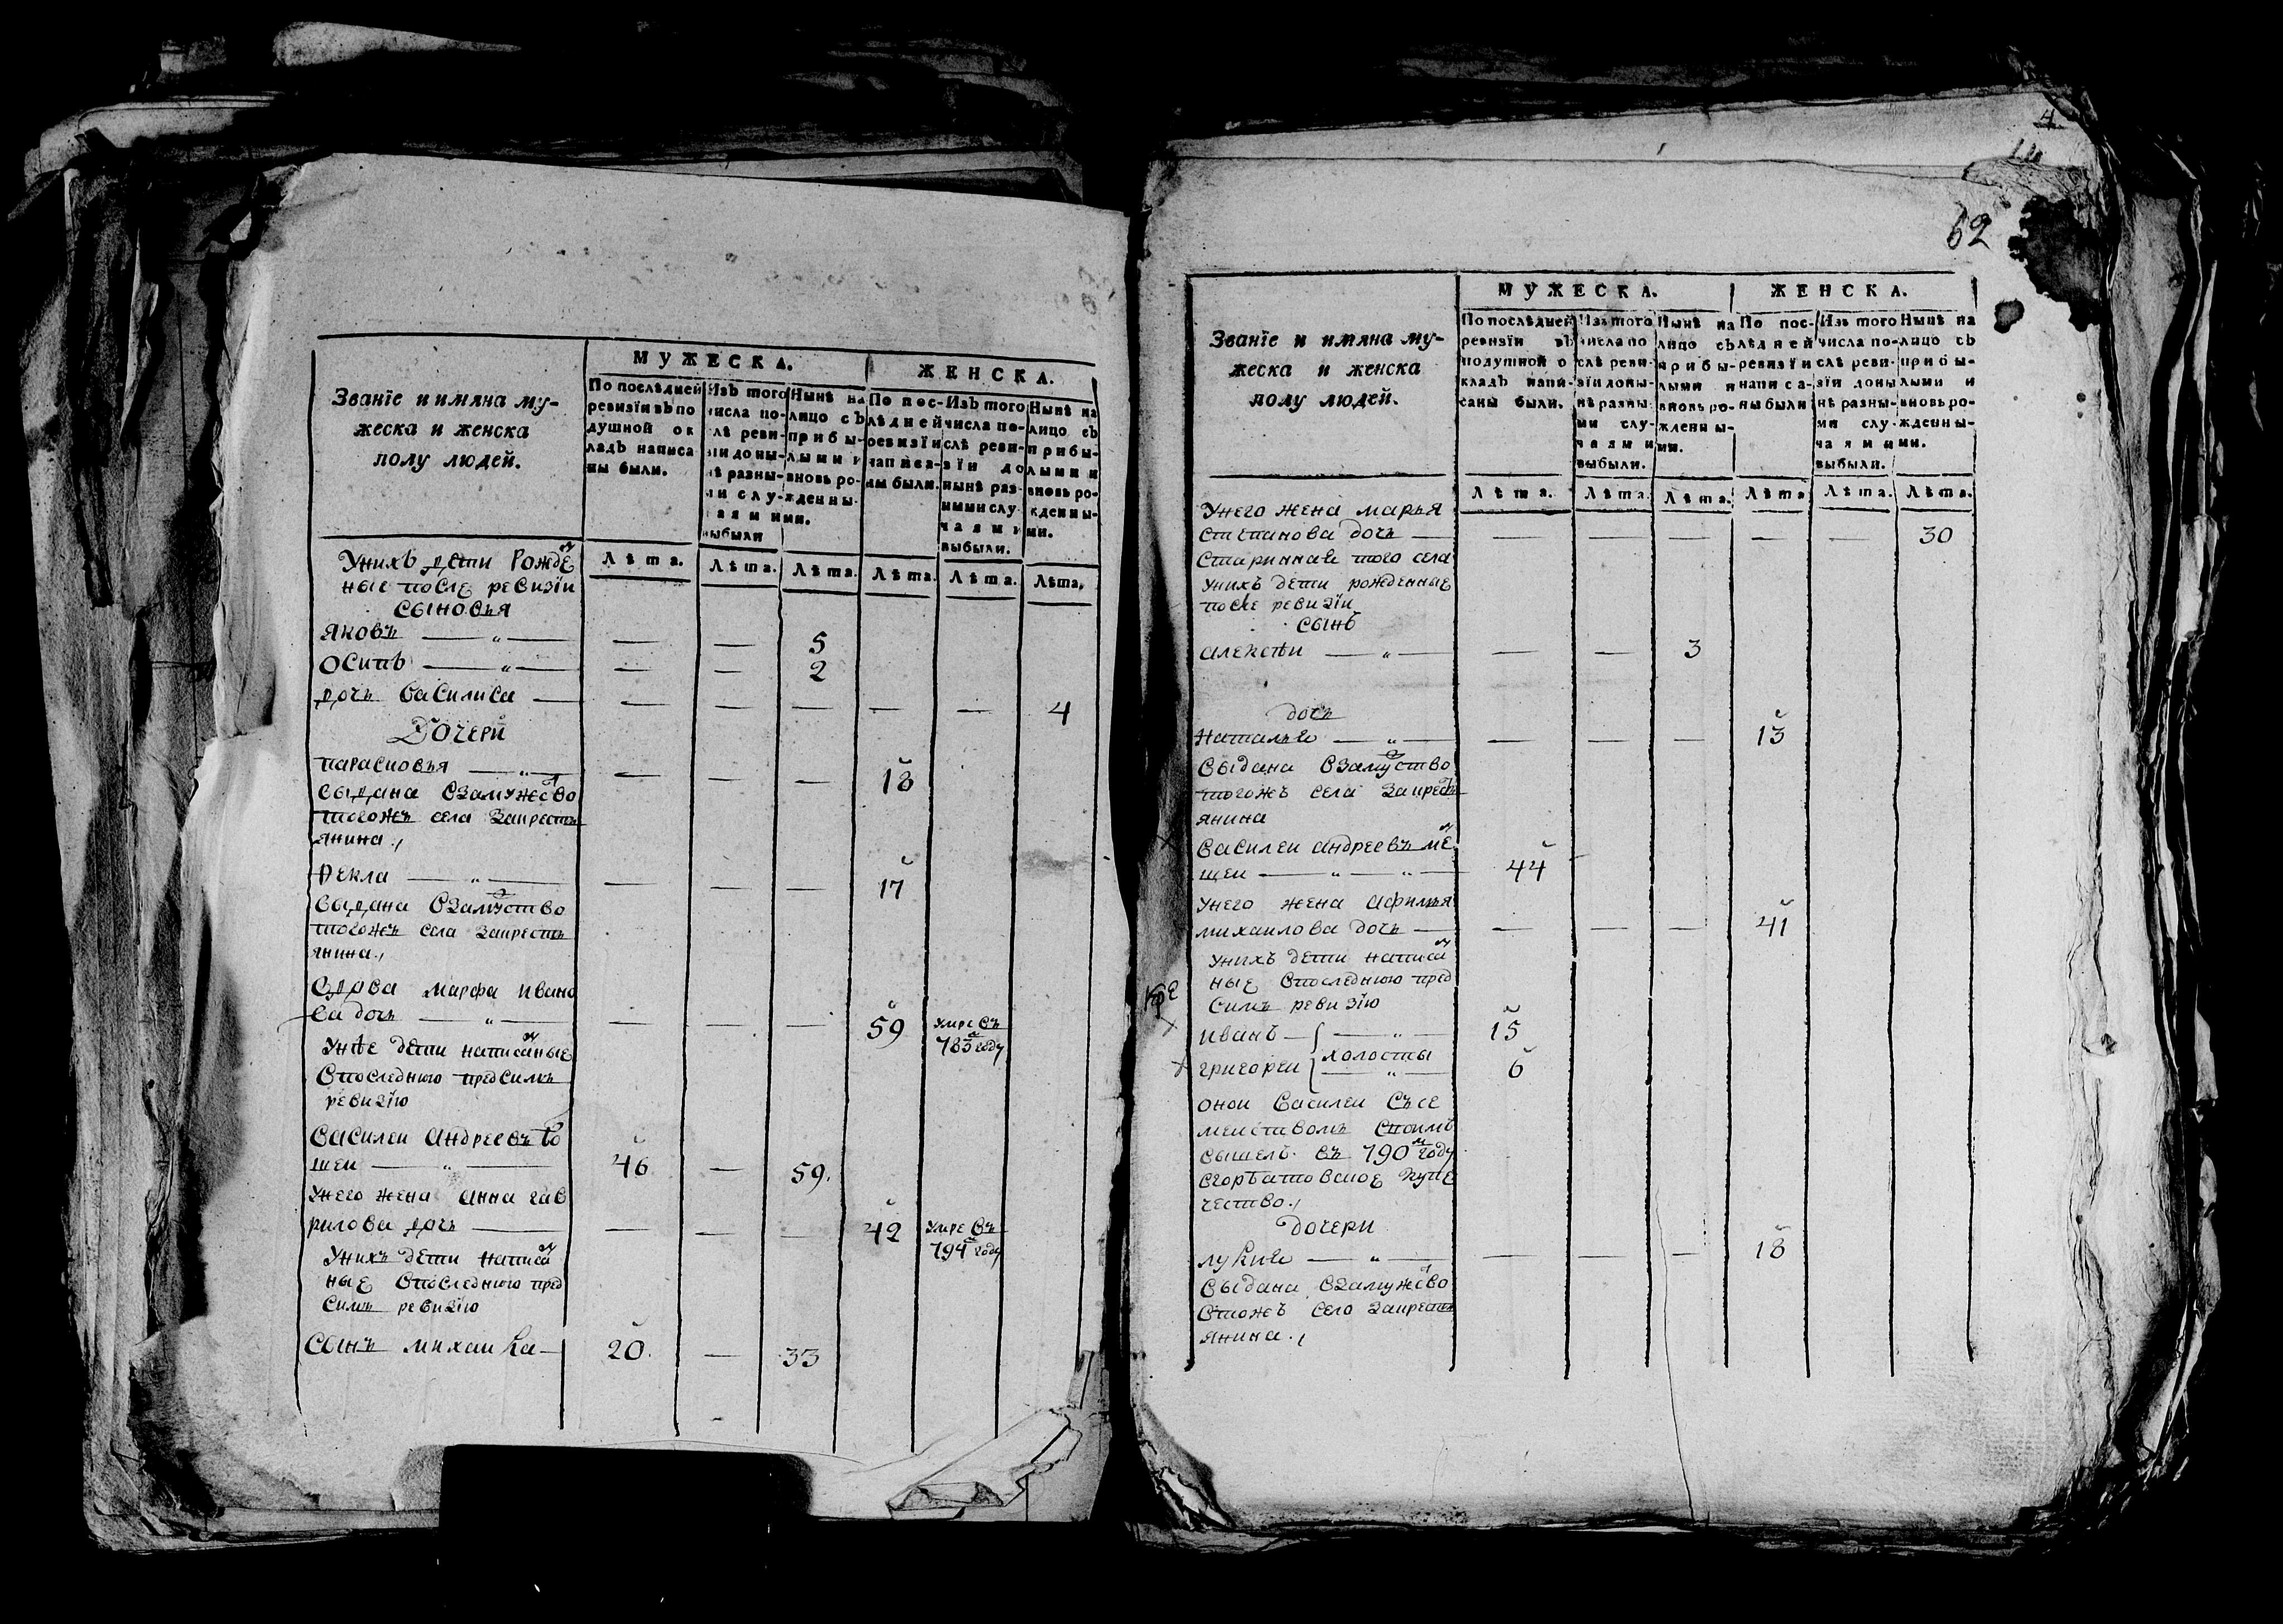 МУЖЕСКА. ЖЕНСКА.
Званїе и имяна му-
жеска и женска
полу людей.
По послѣдней
ревизїи въ по
душной ок
ладъ написа
ны были.
Изъ того
числа по-
слѣ реви-
зїи доны-
нѣ разны-
ми слу-
чаями
выбыли
Нынѣ на
лицо съ
прибы-
лыми и
вновь ро-
жденны-
ми.
По пос-
лѣдней
ревизїи
написа-
ны были.
Изъ того
числа по-
слѣ реви-
зїи до
нынѣ раз-
ными слу-
чаями
выбыли.
Нынѣ на
лицо съ
прибы-
лыми и
вновь ро-
жденны-
ми.
Лѣта. Лѣта. Лѣта. Лѣта. Лѣта. Лѣта.
Унихъ дети Рожде
н
ные после ревизїи
сыновья
яковъ — „ — — — 5
осипъ — „ — — — 2
дочь василиса — — — — — — 4
Дочери
парасковья — „ — — — — 18 й
выдана взамужество
тогожъ села закресть
янина.,
Фекла — „ — — — — 17 й
выдана взамуство
тогожъ села закресть
янина.,
вдова марфа ивано
ва дочь — „ — — — — 59 й умре въ
783 м году
Унѣе дети написаные
впоследнюю предсимъ
ревизїю
василеи андреевъ бо
шеи — „ — 46 й — 59.
Унего жена анна гав
рилова дочь — — — — 42 й умре въ
794 м году
Унихъ дети написа
н
ные впоследнюю пред
симъ ревизїю
сынъ михаила — 20 й. — 33
4
62
МУЖЕСКА. ЖЕНСКА.
Званїе и имяна му-
жеска и женска
полу людей.
По послѣдней
ревизїи въ
подушной о
кладъ напи-
саны были.
Изъ того
числа по
слѣ реви-
зїи доны-
нѣ разны-
ми слу-
чаями
выбыли.
Нынѣ на
лицо съ
прибы-
лыми и
вновь ро-
жденны-
ми.
По пос-
лѣдней
ревизїи
написа-
ны были
Изъ того
числа по-
слѣ реви-
зїи доны
нѣ разны-
ми слу-
чаями
выбыли.
Нынѣ на
лицо съ
прибы-
лыми и
вновь ро-
жденны-
ми.
Лѣта. Лѣта. Лѣта. Лѣта Лѣта. Лѣта.
Унего жена марья
степанова дочь — — — — — — 30
стариннае того села
Унихъ дети рожденные
после ревизїи
сынъ
алексѣи — „ — — — 3
дочь
наталье — „ — — — — 13 й
выдана взамуство
тогожъ села закресть
янина
василеи андреевъ ме
н
шеи — „ — „ — 44 й
унего жена афимья
михаилова дочь — — — — 41 й
унихъ дети написа
н
ные впоследнюю пред
симъ ревизїю
кре
иванъ — „ 15 й
холосты
григореи — „ 6 й
онои василеи съсе
меиствомъ своимъ
вышелъ въ 790 м году
вгорбатовское купе
чество.,
дочери
лукие — „ — — — — 18 й
выдана взамужево
втожъ село закресть
янина.,